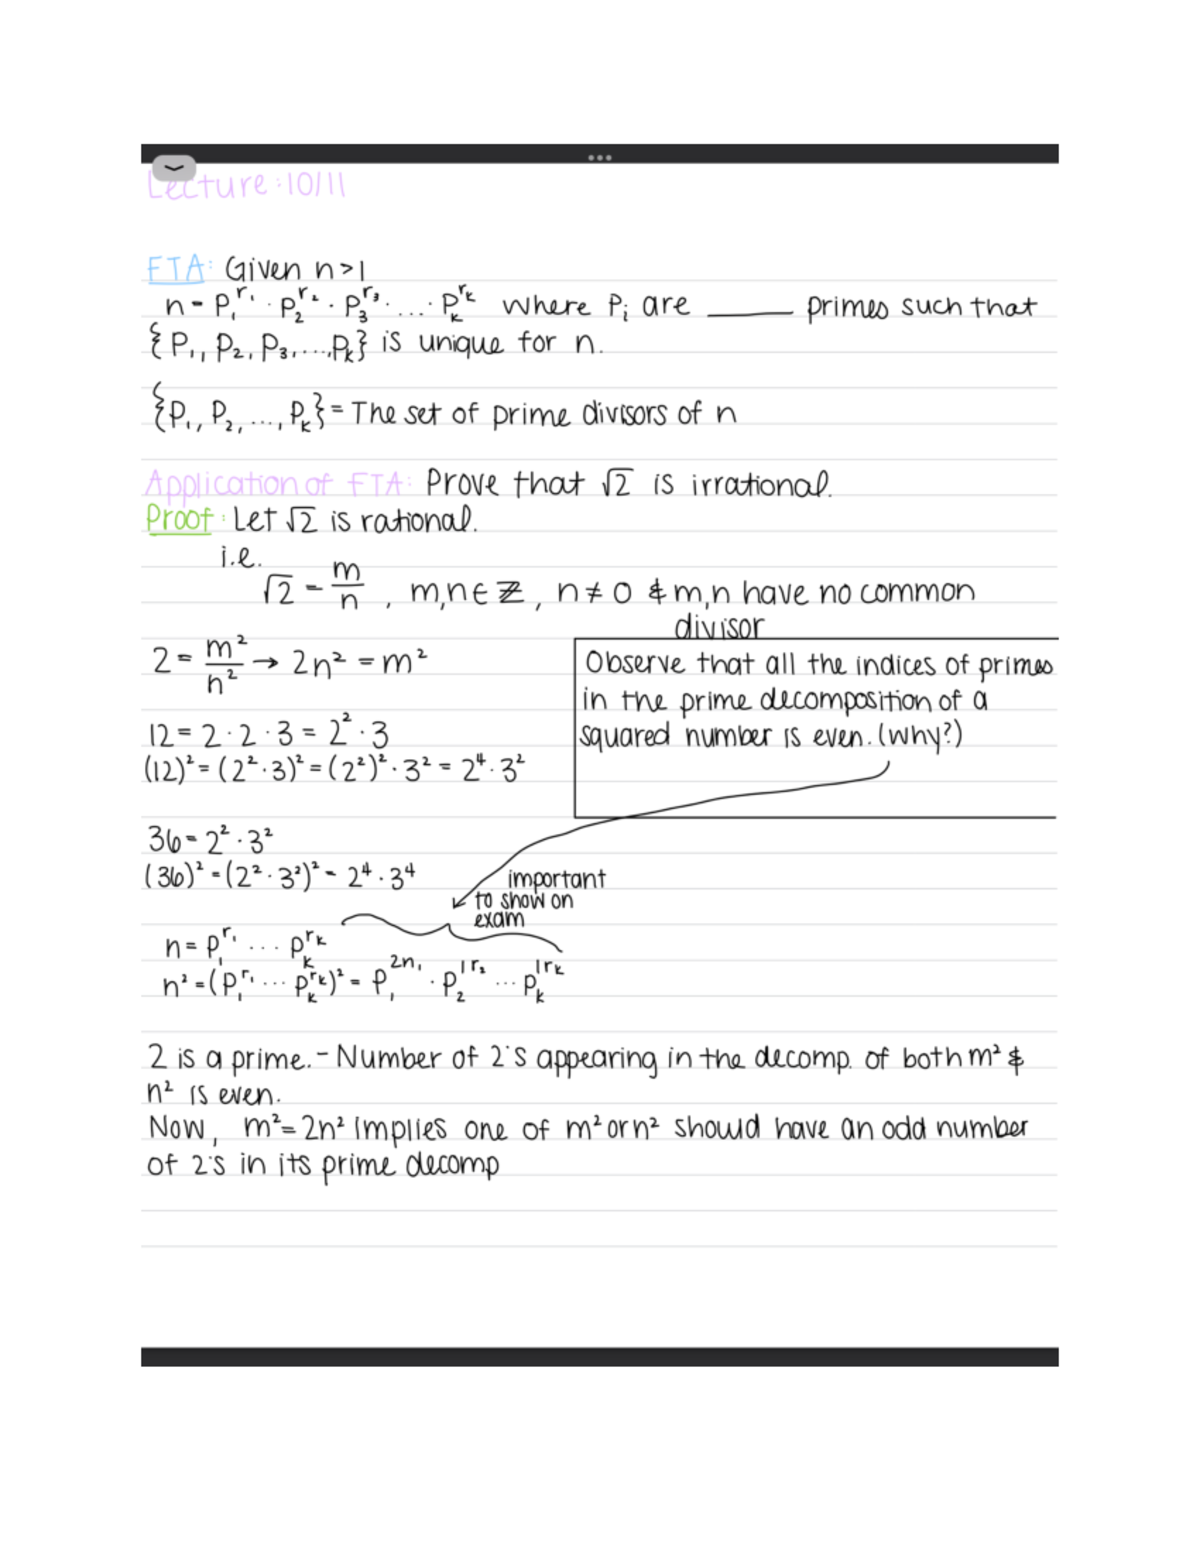 Lecture: 10/11
FTA: Given n>1
n = P₁^r₁ · P₂^r₂ · P₃^r₃ · ... · Pₖ^rₖ where Pᵢ are ______ primes such that
{P₁, P₂, P₃, ..., Pₖ} is unique for n.
{P₁, P₂, ..., Pₖ} = The set of prime divisors of n
Application of FTA: Prove that √2 is irrational.
Proof: Let √2 is rational.
i.e.
√2 = m/n , m,n ∈ ℤ, n ≠ 0 & m,n have no common
divisor
2 = m²/n² → 2n² = m²
Observe that all the indices of primes
in the prime decomposition of a
squared number is even. (why?)
12 = 2 · 2 · 3 = 2² · 3
(12)² = (2² · 3)² = (2²)² · 3² = 2⁴ · 3²
36 = 2² · 3²
(36)² = (2² · 3²)² = 2⁴ · 3⁴
important
to show on
exam
n = P₁^r₁ ... Pₖ^rₖ
n² = (P₁^r₁ ... Pₖ^rₖ)² = P₁^2n₁ · P₂^1r₂ ... Pₖ^1rₖ
2 is a prime. - Number of 2's appearing in the decomp. of both m² &
n² is even.
Now, m² = 2n² implies one of m² or n² should have an odd number
of 2's in its prime decomp